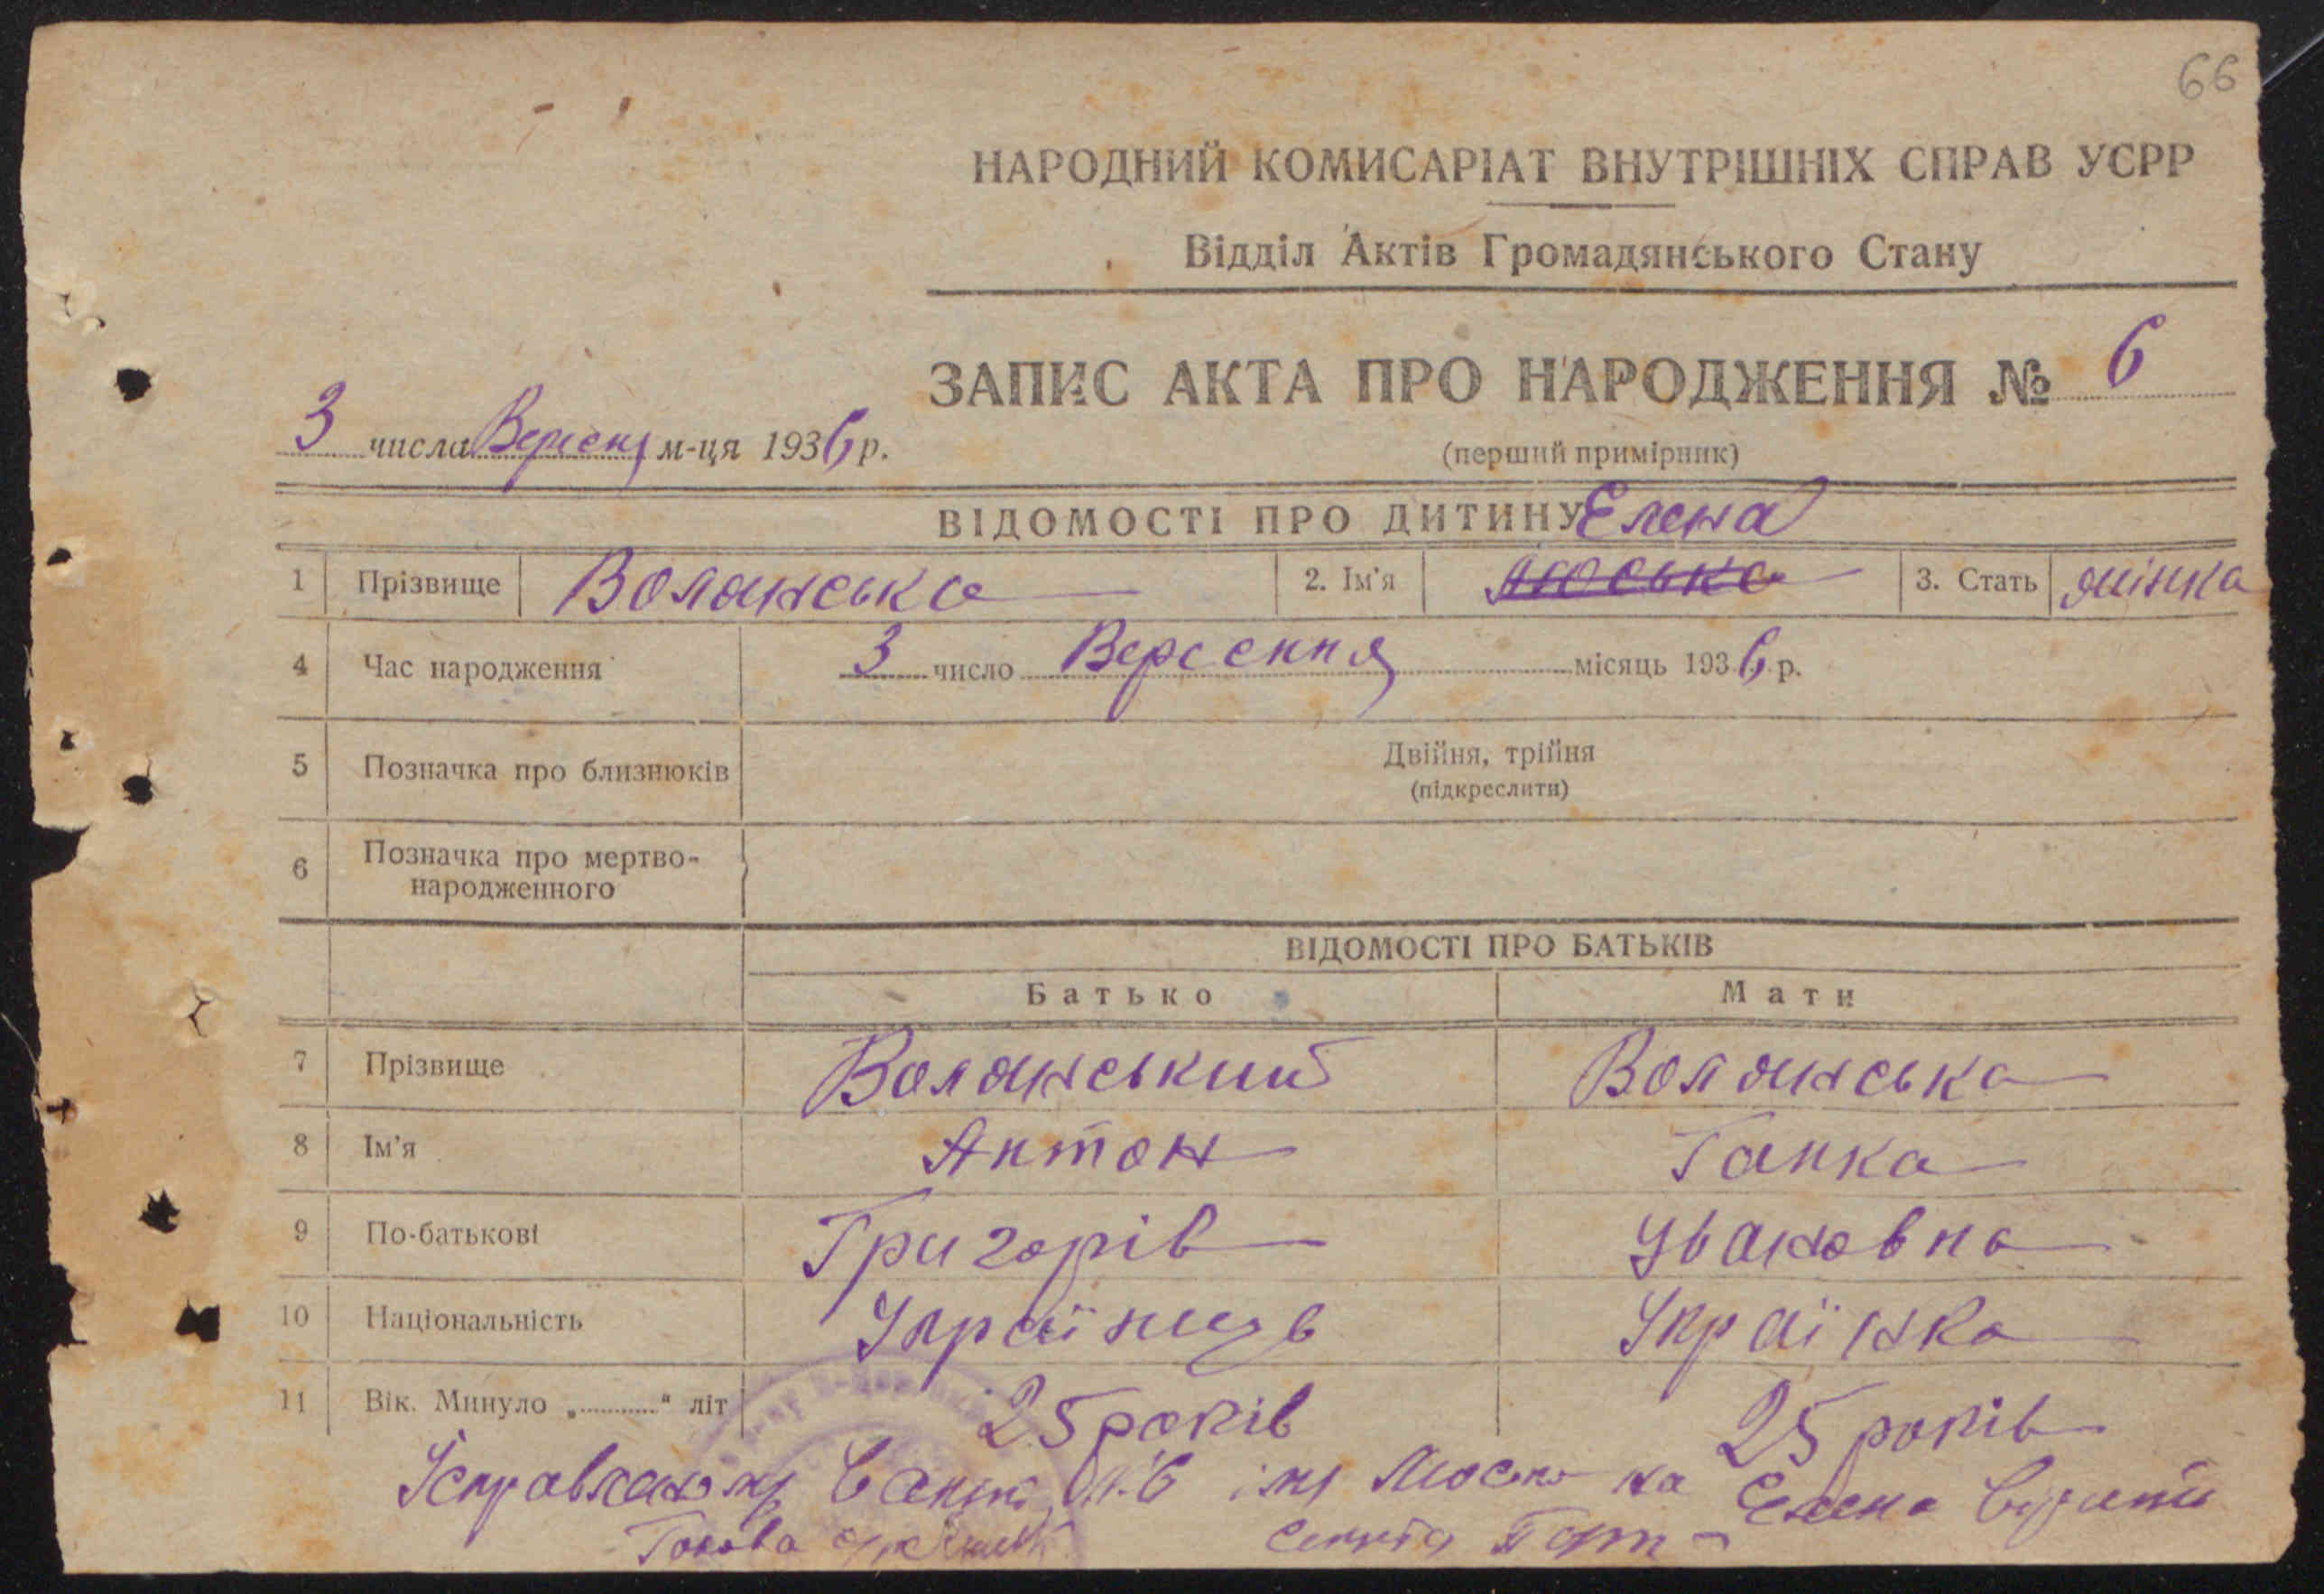 66
НАРОДНИЙ КОМИСАРІАТ ВНУТРІШНІХ СПРАВ УСРР
Відділ Актів Громадянського Стану
ЗАПИС АКТА ПРО НАРОДЖЕННЯ № 6
3 числа Вересня м-ця 1936 р.
(перший примірник)
ВІДОМОСТІ ПРО ДИТИНУ Елена
1 Прізвище Волянська 2. Ім'я Люська 3. Стать жінка
4 Час народження 3 число Вересення місяць 1936 р.
5 Позначка про близнюків Двійня, трійня
(підкреслити)
6 Позначка про мертво-
народженного
ВІДОМОСТІ ПРО БАТЬКІВ
Батько Мати
7 Прізвище Волянський Волянська
8 Ім'я Антон Ганка
9 По-батькові Григорів Ивановна
10 Національність Українець Українка
11 Вік. Минуло „..........“ літ 25 років 25 років
№ 6 імя Люська на Елена
Голова